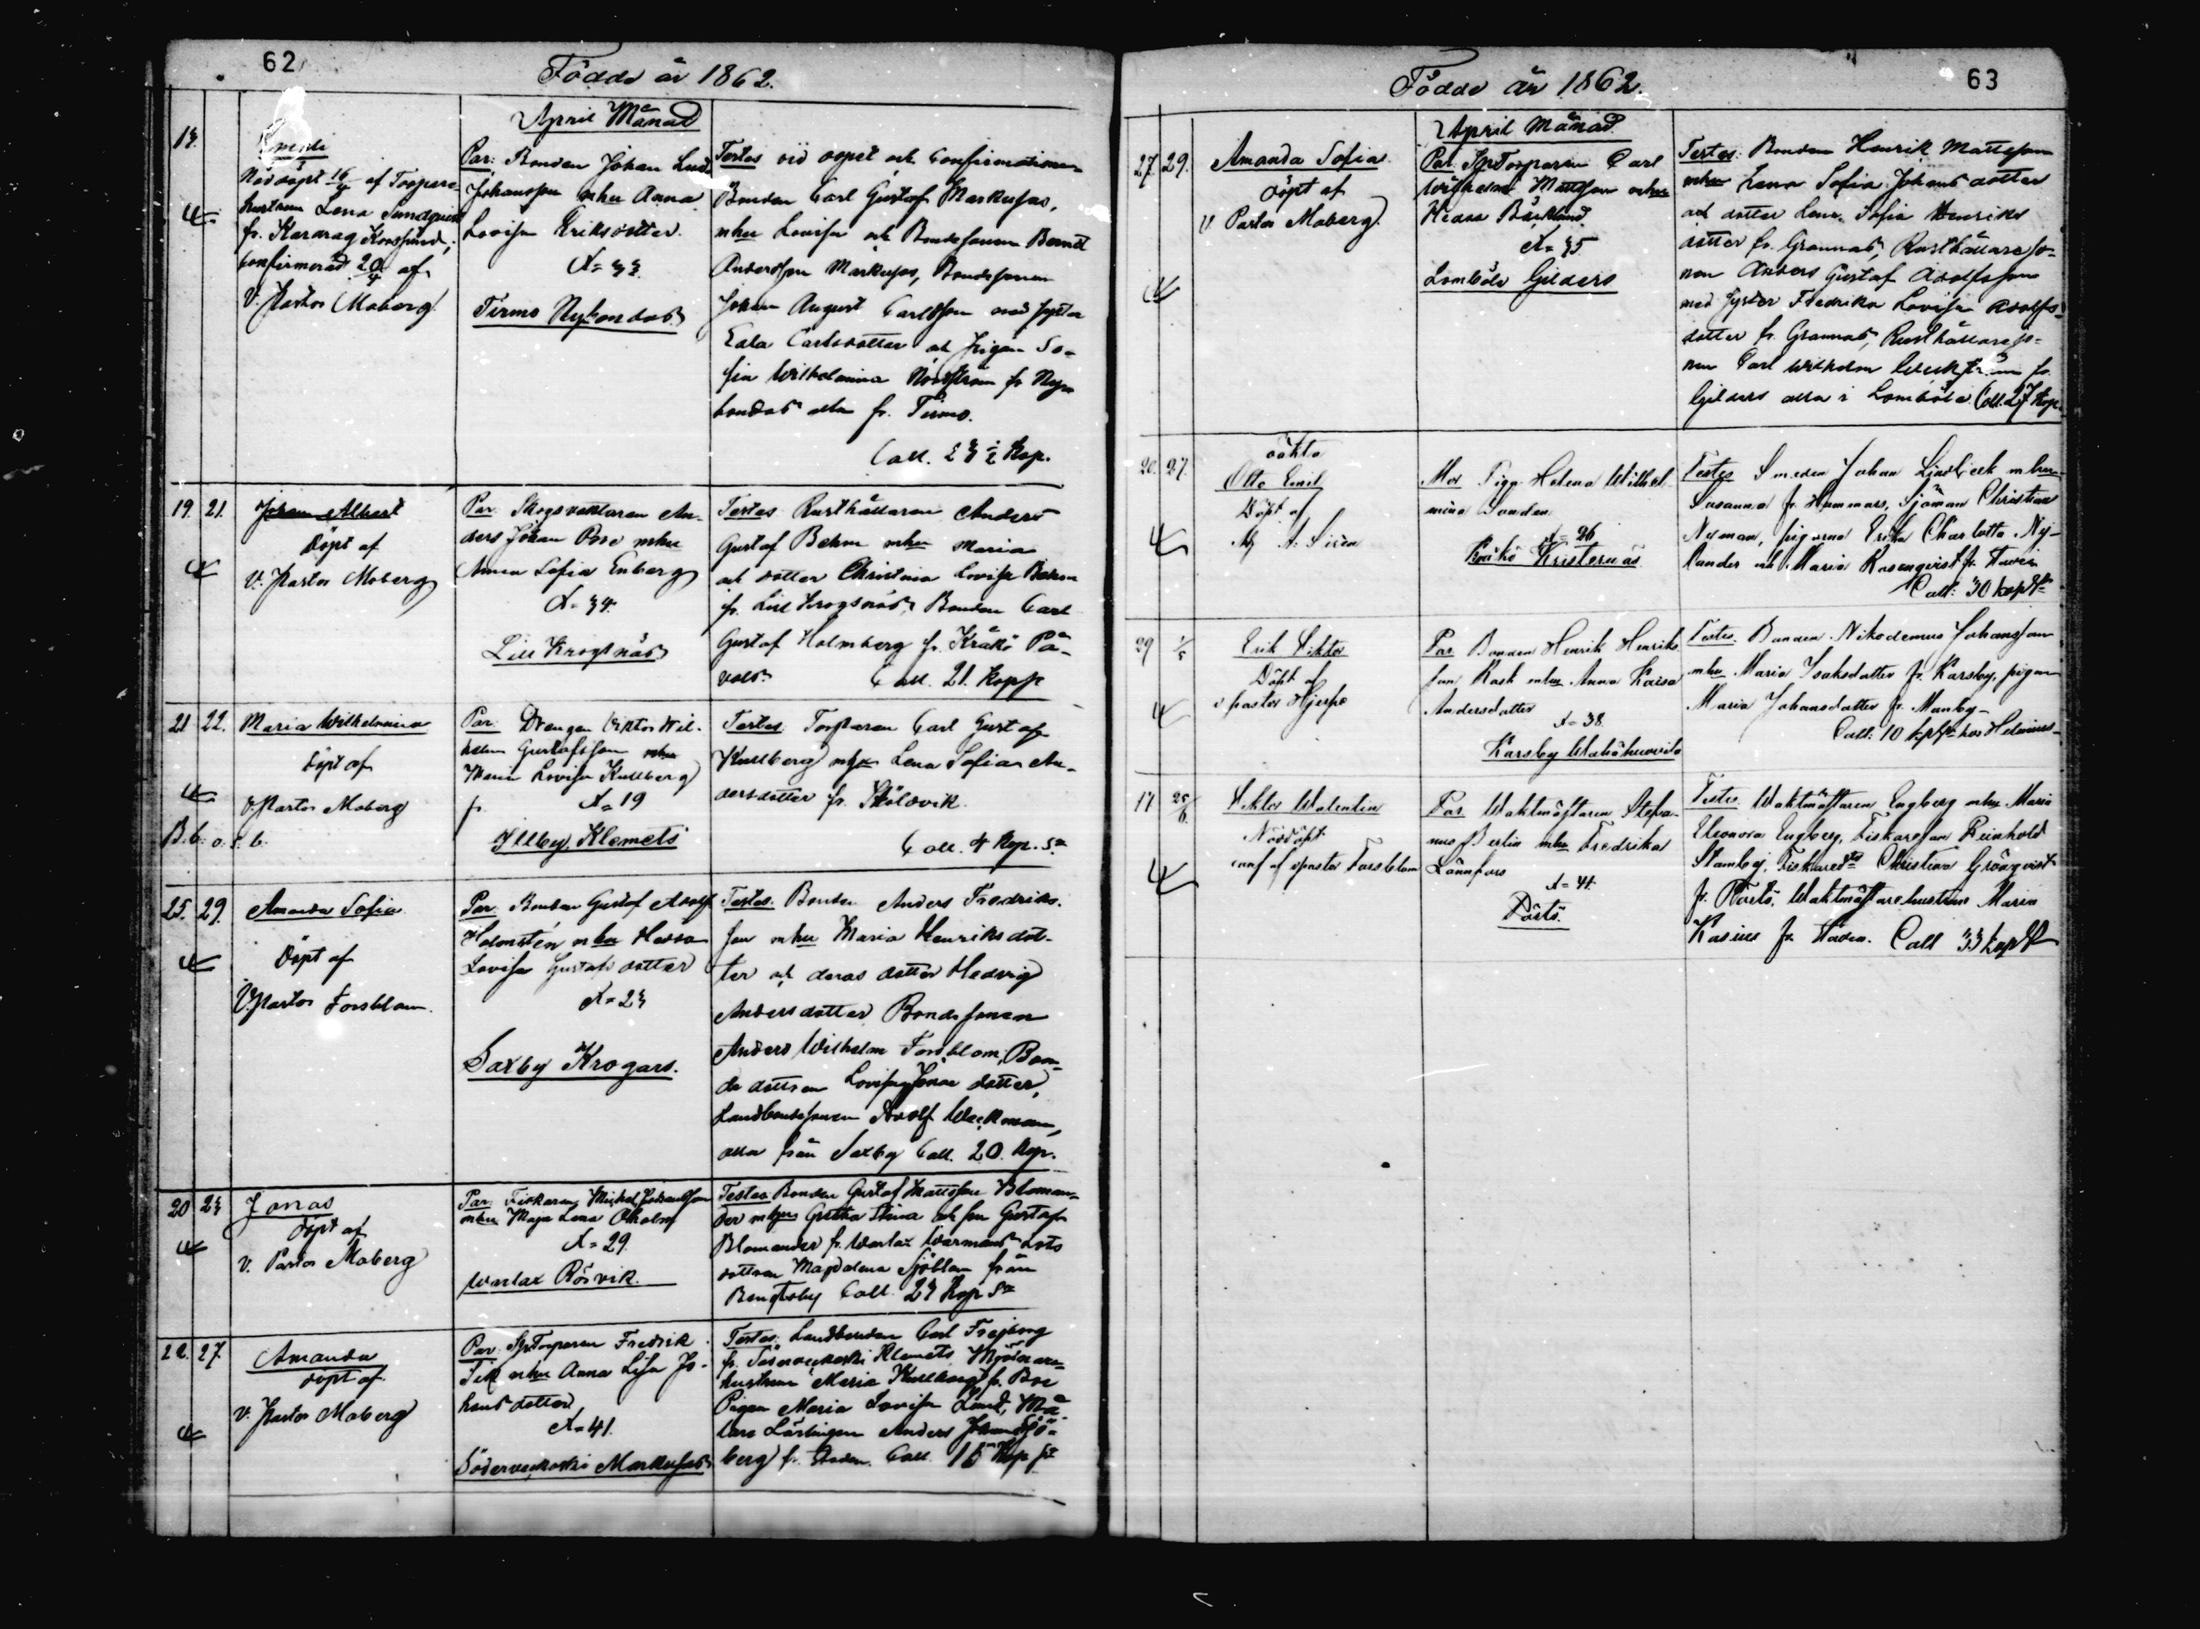 62
Födde år 1862.
April Månad
13.
Nöddöpt 16/4 af Torpare-
hustrun Lena Sundqvist
fr. Kardrag
confirmerad 20/4 af
V. Pastor Moberg
Par: Bonden Johan
Johansson mhu Anna
Lovisa Eriksdotter
Tirmo Nybondas
Testes vid dopet och Confirmationen
Bonden Carl Gustaf Markusas,
mhu Lovisa och Bondesonen
Andersson Markusas, Bondesonen
Johan August Carlsson med syster
Eda Carlsdotter och Pigan So-
fia Wilhelmina Nordström fr Ny-
bondas alla fr. Tirmo.
Coll. 23 1/2 Kop.
19. 21. Johan Albert
Döpt af
V. Pastor Moberg
Par: Skogsvaktaren An-
ders Johan mhu
Anna Sofia Enberg
A= 34.
Lill Krogsnäs
Testes Rusthållaren Anders
Gustaf Behm mhu Maria
och dotter Christina Lovisa Behm
fr. Lill Krogsnäs, Bonden Carl
Gustaf Holmberg fr. Kråkö På-
vals. Coll. 21. Kop
21 22. Maria Wilhelmina
Döpt af
V. Pastor Moberg
Par: Drengen Viktor Wil-
helm Gustafsson mhu
Maria Lovisa Kullberg
fr. A= 19
Illby Klemets
Testes: Torparen Carl Gustaf
Kullberg mhu Lena Sofia An-
dersdotter fr. Sköldvik.
Coll. 4 Kop. Sr
25. 29. Amanda Sofia
Döpt af
V. Pastor Forsblom.
Par: Bonden Gustaf Adolf
Holmstén mhu Hedda
Lovisa Gustafsdotter
A= 23
Saxby Krogars.
Testes: Bonden Anders Fredriks-
son mhu Maria Henriksdot-
ter och deras dotter Hedvig
Andersdotter Bondesonen
Anders Wilhelm Forsblom, Bon-
de dottren Lovisa dotter,
Landbondesonen Adolf Weckman,
alla från Saxby Coll. 20. Kop.
20 23 Jonas
döpt af
V. Pastor Moberg
Par: Fiskaren Michel Johansson
mhu Maja Lena Öholm
A= 29.
Warlax Rösvik.
Testes Bonden Gustaf Mattsson Bloman-
der mhu Gretha Stina och son Gustaf
Blomander fr. Warlax Warmans Lots
dottren Magdalena Sjöblom från
Bengtsby Coll. 23 Kop Sr
22. 27. Amanda
döpt af
V. Pastor Moberg
Par: SpTorparen Fredrik
mhu Anna Lisa Jo-
hansdotter
A= 41.
Söderveckoski Markusas
Testes: Landbonden Carl
fr. Söderveckoski Klemets Mjölnare-
hustrun Maria fr. Boe
Pigan Maria Lovisa Lund, Må-
lare Lärlingen Anders Johan Sjö-
berg fr. Staden. Coll. 15 Kop Sr
Födde år 1862.
63
April Månad
27. 29. Amanda Sofia
döpt af
V Pastor Moberg.
Par: SpTorparen Carl
Wilhelm Mattsson mhu
Hedda Bäcklund
A= 35.
Lomböle Gilders
Testes: Bonden Henrik Mattsson
mhu Lena Sofia Johansdotter
och dotter Lena Sofia Henriks
dotter fr. Grannas, Rusthållareso-
nen Anders Gustaf Adolfsson
med Syster Fredrika Lovisa Adolfs-
dotter fr. Grannas, Rusthållareso-
nen Carl Wilhelm Weckström fr.
Gilders alla i Lomböle. Coll. 27 Kop.
20. 27. oäkta
Otto Emil
Döpt af
A. Sirén
Mor Pigan Helena Wilhel-
mina Sanden
A= 26
Kråkö Kristernäs
Testes Smeden Johan Lindbeck mhu
Susanna fr. Hammars, Sjöman Christian
Nyman, pigorna Erika Charlotta Ny-
lander och Maria Rosenqvist fr. Staden
Coll: 30 kop
29 1/5 Erik Viktor
Döpt af
v pastor Hjerpe
Par Bonden Henrik Henriks
son Rask mhu Anna Kaisa
Andersdotter
A= 38.
Karsby
Testes. Bonden Nikodemus Johansson
mhu Maria Isaksdotter fr. Karsby, pigan
Maria Johansdotter fr. Munby
Coll: 10 kop
17 Viktor Walentin
Nöddöpt
conf af vpastor Forsblom
Par Waktmästaren Stefa-
nus Berlin mhu Fredrika
Lönnfors
A= 41.
Pörtö.
Testes. Waktmästaren Engberg mhu Maria
Eleonora Engberg, Fiskareson Reinhold
Stambej, Fiskaredtr Christina Grönqvist
fr. Pörtö, Waktmästarehustrun Maria
fr. Staden. Coll 33 kop